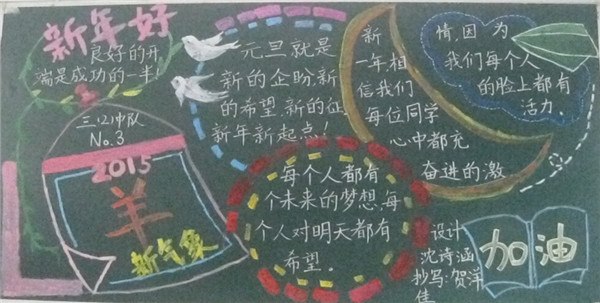 新年好
良好的开
端是成功的一半!
三(2)中队
No.3
2015
羊
新气象
元旦就是
新的企盼,新
的希望,新的征
新年新起点!
每个人都有
个未来的梦想,每
个人对明天都有
希望。
新
一年相
信我们
每位同学
心中都充
奋进的激
情,因为
我们每个人
的脸上都有
活力.
设计
沈诗涵
抄写:贺洋
佳
加油